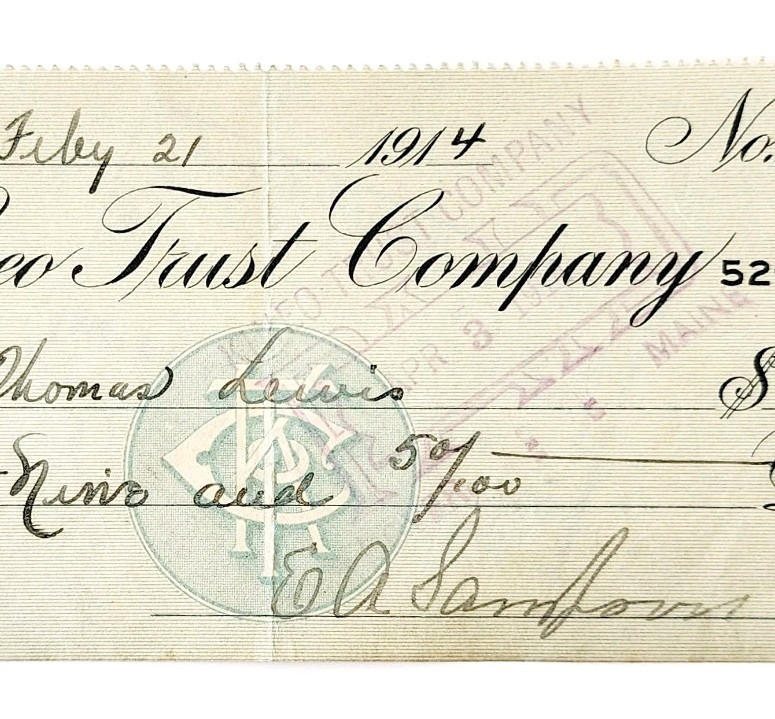 Feby 21 1914 No.
eo Trust Company 52
Thomas Lewis $
Nine and 50/100
E A
KINEO TRUST COMPANY
APR 3
MAINE